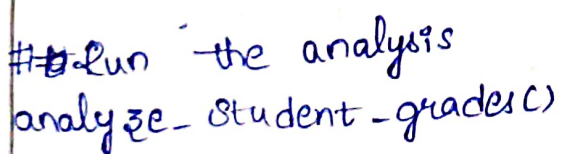 # Run the analysis
analyze_student_grades()